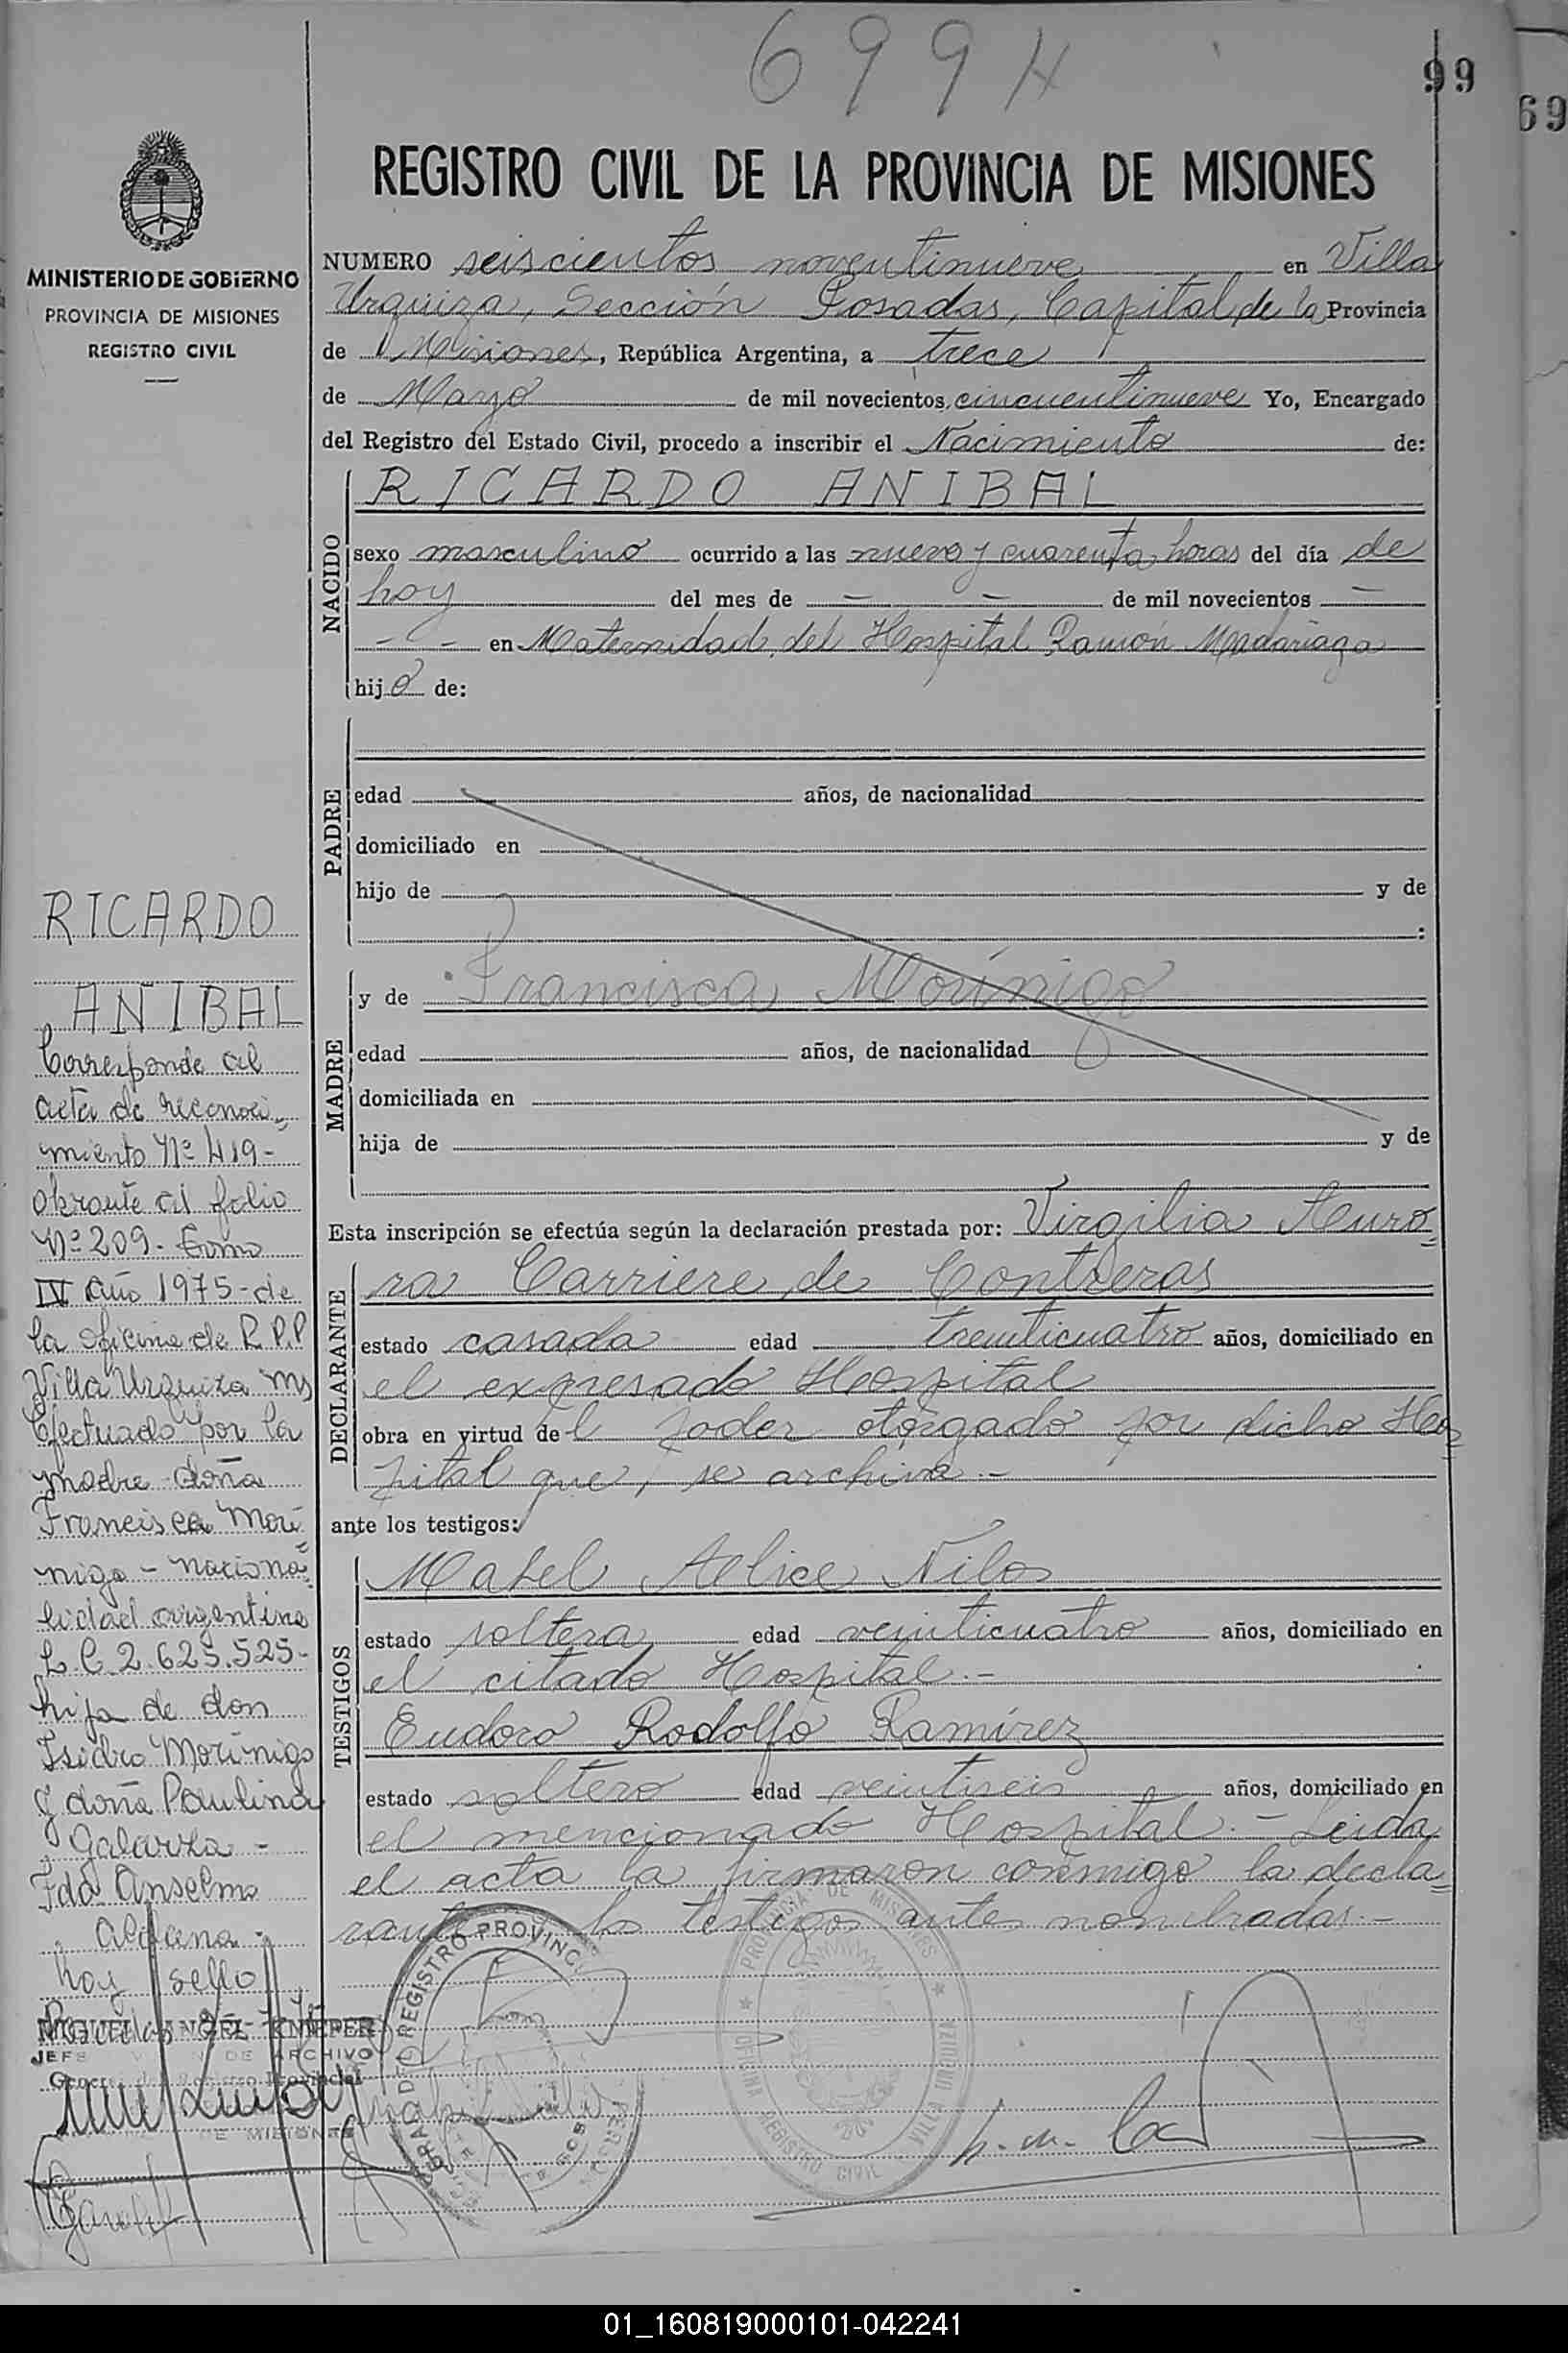 699 H
99
69
REGISTRO CIVIL DE LA PROVINCIA DE MISIONES
MINISTERIO DE GOBIERNO
PROVINCIA DE MISIONES
REGISTRO CIVIL
NUMERO seiscientos noventinueve en Villa
Urquiza, Sección Posadas, Capital de la Provincia
de Misiones, República Argentina, a trece
de Marzo de mil novecientos cincuentinueve Yo, Encargado
del Registro del Estado Civil, procedo a inscribir el Nacimiento de:
NACIDO
RICARDO ANIBAL
sexo masculino ocurrido a las nueve y cuarenta horas del día de
hoy del mes de — — de mil novecientos —
- - en Maternidad del Hospital Ramón Madariaga
hijo de:
PADRE
edad años, de nacionalidad
domiciliado en
hijo de y de
:
MADRE
y de Francisca Morínigo
edad años, de nacionalidad
domiciliada en
hija de y de
Esta inscripción se efectúa según la declaración prestada por: Virgilia Auro
DECLARANTE
ra Carriere de Contreras
estado casada edad treinticuatro años, domiciliado en
el expresado Hospital
obra en virtud del poder otorgado por dicho Hos
pital que, se archiva.-
ante los testigos:
TESTIGOS
Mabel Alice Nilos
estado soltera edad veinticuatro años, domiciliado en
el citado Hospital.-
Eudoro Rodolfo Ramírez
estado soltero edad veintiseis años, domiciliado en
el mencionado Hospital.- Leida
el acta la firmaron conmigo la decla=
rante los testigos antes nombrados.-
RICARDO
ANIBAL
Corresponde al
acta de reconoci=
miento Nº 419-
obrante al folio
Nº 209- Tomo
IV Año 1975- de
la oficina de R.P.P
Villa Urquiza Ms
Efectuado por la
madre doña
Francisca Morí=
nigo - naciona=
lidad argentina
L.C. 2.625.525-
hija de don
Isidro Morínigo
y doña Paulina
Galarza -
Fdo Anselmo
Aldana -
hay sello
Posadas
MIGUEL ANGEL KNIEPER
JEFE DE ARCHIVO
DE MISIONES
REGISTRO PROVINCIAL
PROVINCIA DE MISIONES
OFICINA REGISTRO CIVIL VILLA URQUIZA
01_160819000101-042241